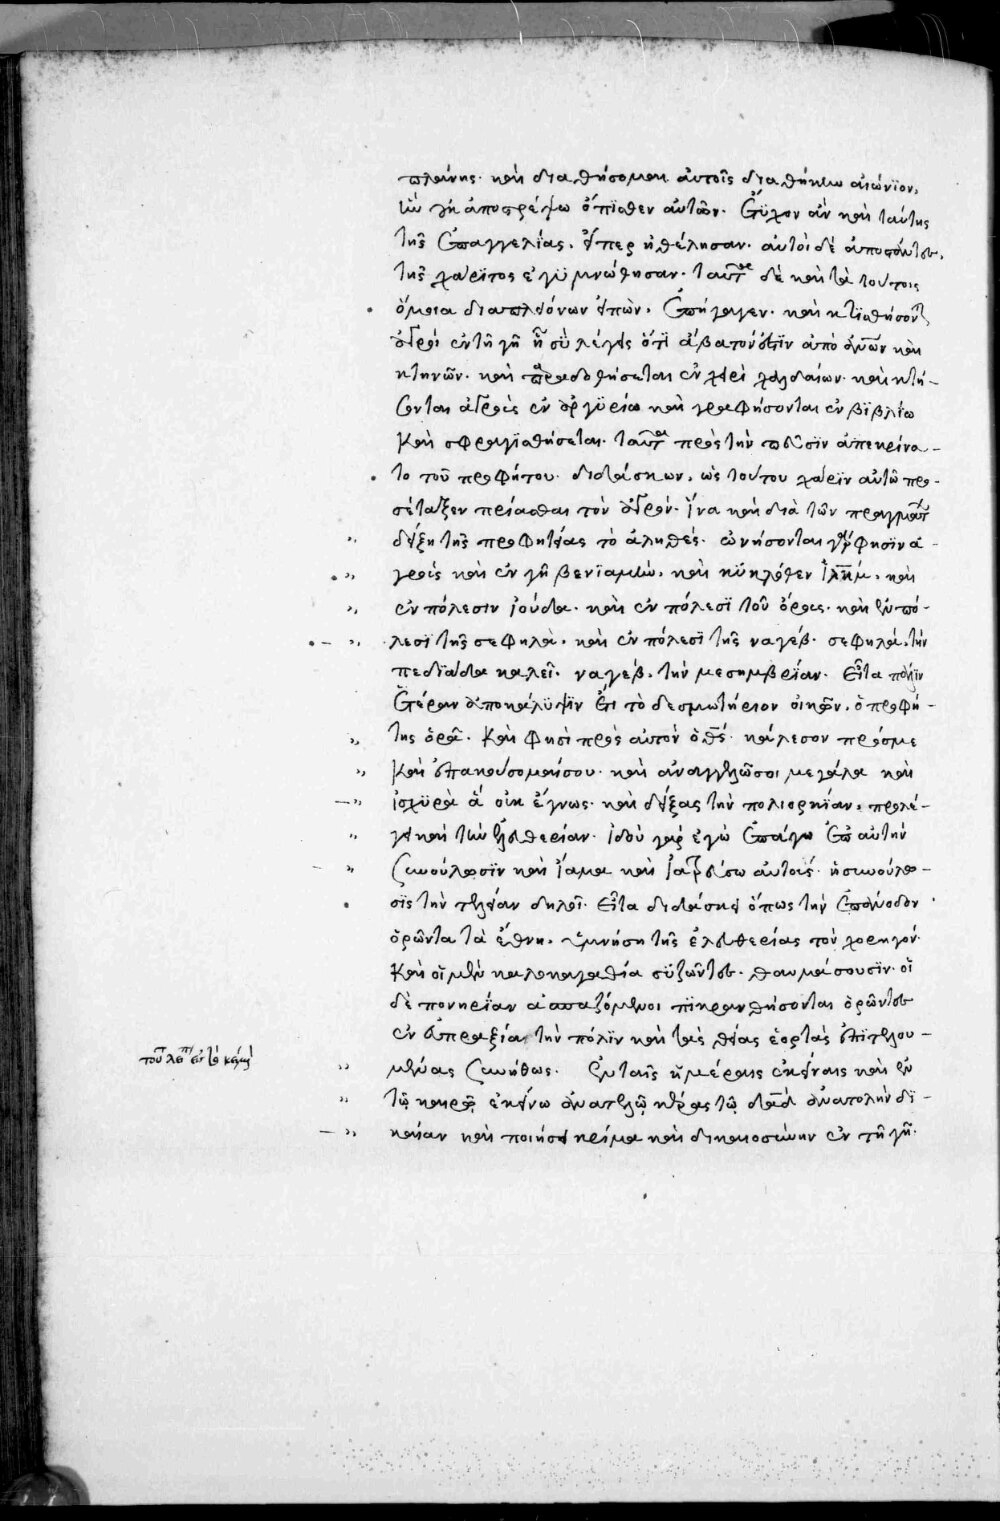 πλάνης· καὶ διαθήσομαι αὐτοῖς διαθήκην αἰώνϊον,
ἣν μὴ ἀποστρέψω ὄπϊσθεν αὐτῶν. ἔτϋχον ἂν καὶ ταύτης
τῆς ἐπαγγελΐας, εἴπερ ἠθέλησαν. αὐτοὶ δὲ ἀποστάντες,
τῆς χάρϊτος ἐγϋμνώθησαν. ταῦτα δὲ καὶ τὰ τούτοις
ὅμοια διαπλεόνων εἰπὼν, ἐπήγαγεν. καὶ κτϊσθήσοντ
ἀγροὶ ἐν τῇ γῇ ᾗ σὺ λέγεις ὅτϊ ἄβατόν ἐστϊν ἀπὸ ἀνων καὶ
κτηνῶν. καὶ παραδοθήσεται ἐν χερὶ χαλδαίων. καὶ κτή-
σονται ἀγροὺς ἐν ἀργϋρίω καὶ γραφήσονται ἐν βϊβλίω
καὶ σφραγϊσθήσεται. ταῦτα πρὸς τὴν πεῦσϊν ἀπεκρίνα-
το τοῦ προφήτου. διδάσκων, ὡς τούτου χάρϊν αὐτῶ προ-
σέταξεν πρίασθαι τὸν ἀγρόν. ἵνα καὶ διὰ τῶν πραγμάτ
δείξη τῆς προφητείας τὸ ἀληθές. ὠνήσονται γάρ φησϊν ἀ-
γροὺς καὶ ἐν γῆ βενϊαμὶν. καὶ κϋκλόθεν ἰλημ. καὶ
ἐν πόλεσιν ἰούδα. καὶ ἐν πόλεσϊ τοῦ ὄρους. καὶ ἐν πό-
λεσϊ τῆς σεφηλὰ. καὶ ἐν πόλεσϊ τῆς ναγέβ. σεφηλὰ, τὴν
πεδϊάδα καλεῖ. ναγέβ, τὴν μεσημβρίαν. εἶτα πάλϊν
ἑτέραν ἀποκάλϋψϊν ἔτι τὸ δεσμωτήριον οἰκῶν, ὁ προφή-
της ὁρᾶ. καὶ φησὶ πρὸς αὐτὸν ὁ θς. κάλεσον πρόσμε
καὶ ἐπακούσομαίσου. καὶ ἀναγγελῶσοι μεγάλα καὶ
ἰσχϋρὰ ἃ οὐκ ἔγνως. καὶ δείξας τὴν πολιορκϊαν, προλέ-
γει καὶ τὴν ἐλευθερίαν. ἰδοὺ γὰρ ἐγὼ ἐπάγω ἐπ αὐτὴν
συνούλωσϊν καὶ ἴαμα καὶ ἰατρεύσω αὐτούς. ἡ συνούλω-
σϊς τὴν τελείαν δηλοῖ. εἶτα διδάσκει ὅπως τὴν ἐπάνοδον
ὁρῶντα τὰ ἔθνη, ὑμνήση τῆς ἐλευθερίας τὸν χορηγόν.
καὶ οἱ μὲν καλοκαγαθία σϋζῶντες, θαυμάσουσϊν. οἱ
δὲ πονηρίαν ἀσπαζόμενοι πϊκρανθήσονται ὁρῶντες
ἐν εὐπραξία τὴν πόλϊν καὶ τὰς θείας ἑορτὰς ἐπϊτελου-
μένας συνήθως. ἐν ταῖς ἡμέραις ἐκείναις καὶ ἐν
τῷ καιρῷ ἐκείνω ἀνατελῶ κέρας τῷ δαδ ἀνατολὴν δϊ-
καίαν καὶ ποιήσει κρίμα καὶ δικαιοσύνην ἐν τῇ γῇ.